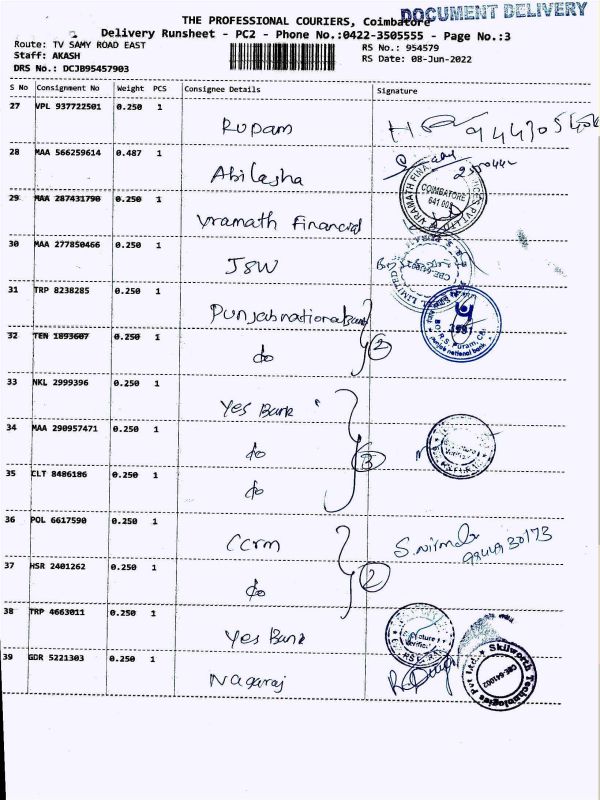 DOCUMENT DELIVERY
THE PROFESSIONAL COURIERS, Coimbatore
Delivery Runsheet - PC2 - Phone No.:0422-3505555 - Page No.:3
Route: TV SAMY ROAD EAST
RS No.: 954579
Staff: AKASH
RS Date: 08-Jun-2022
DRS No.: DCJB95457903
S No Consignment No Weight PCS Consignee Details Signature
27 VPL 937722501 0.250 1 Rupam
28 MAA 566259614 0.487 1 Abilasha
29 MAA 287431790 0.250 1 Vramath Financial
COIMBATORE
30 MAA 277850466 0.250 1 JSW
31 TRP 8238285 0.250 1 Punjab national Bank
R.S. Puram,
punjab national bank
32 TEN 1893607 0.250 1 do 2
33 NKL 2999396 0.250 1 Yes Bank
34 MAA 290957471 0.250 1 do 3
35 CLT 8486186 0.250 1 do
36 POL 6617590 0.250 1 CCrm S. Nirmala
37 HSR 2401262 0.250 1 do 2
38 TRP 4663011 0.250 1 Yes Bank
39 GDR 5221303 0.250 1 Nagaraj
Skilworth Technologies Pvt Ltd. CBE-641002